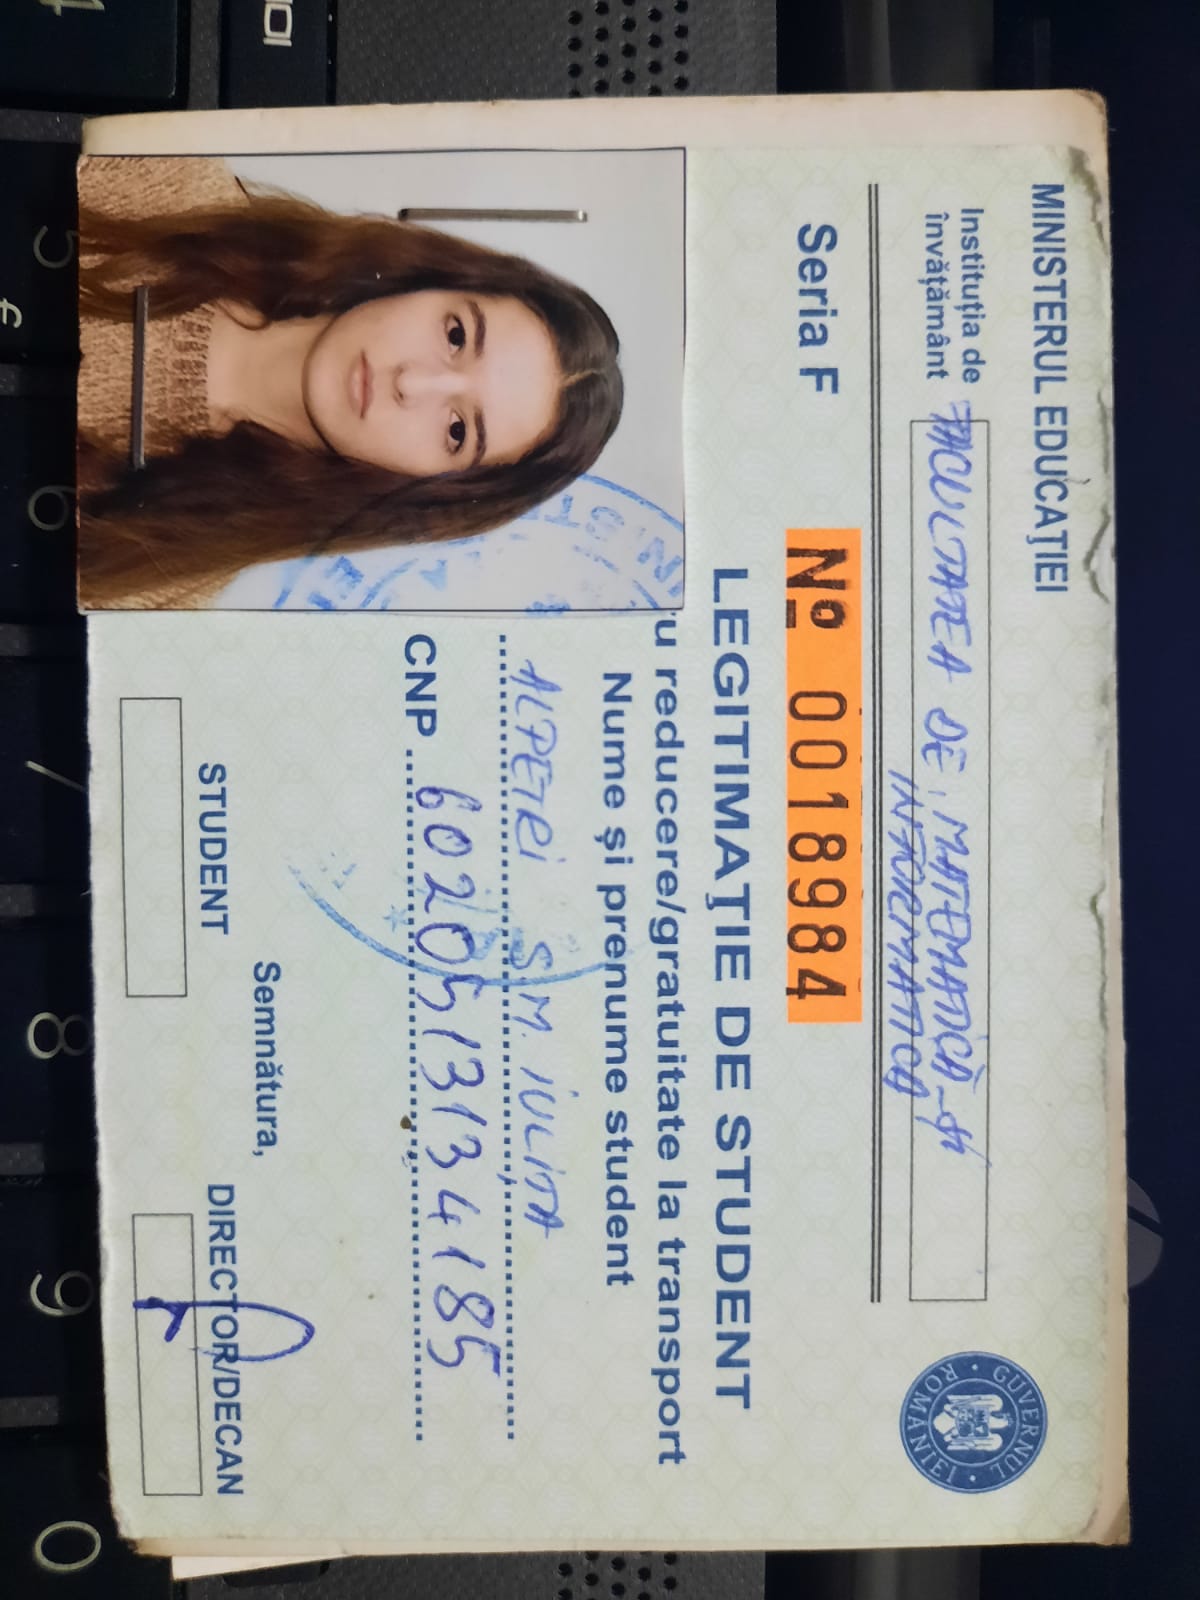 MINISTERUL EDUCAŢIEI
Instituţia de
învăţământ
FACULTATEA DE MATEMATICĂ ŞI
INFORMATICĂ
GUVERNUL ROMÂNIEI
Seria F
Nº 0018984
LEGITIMAŢIE DE STUDENT
u reducere/gratuitate la transport
Nume şi prenume student
ALPETRI S.M. IULITA
CNP 6020513134185
Semnătura,
STUDENT
DIRECTOR/DECAN
5
€
6
7
8
9
0